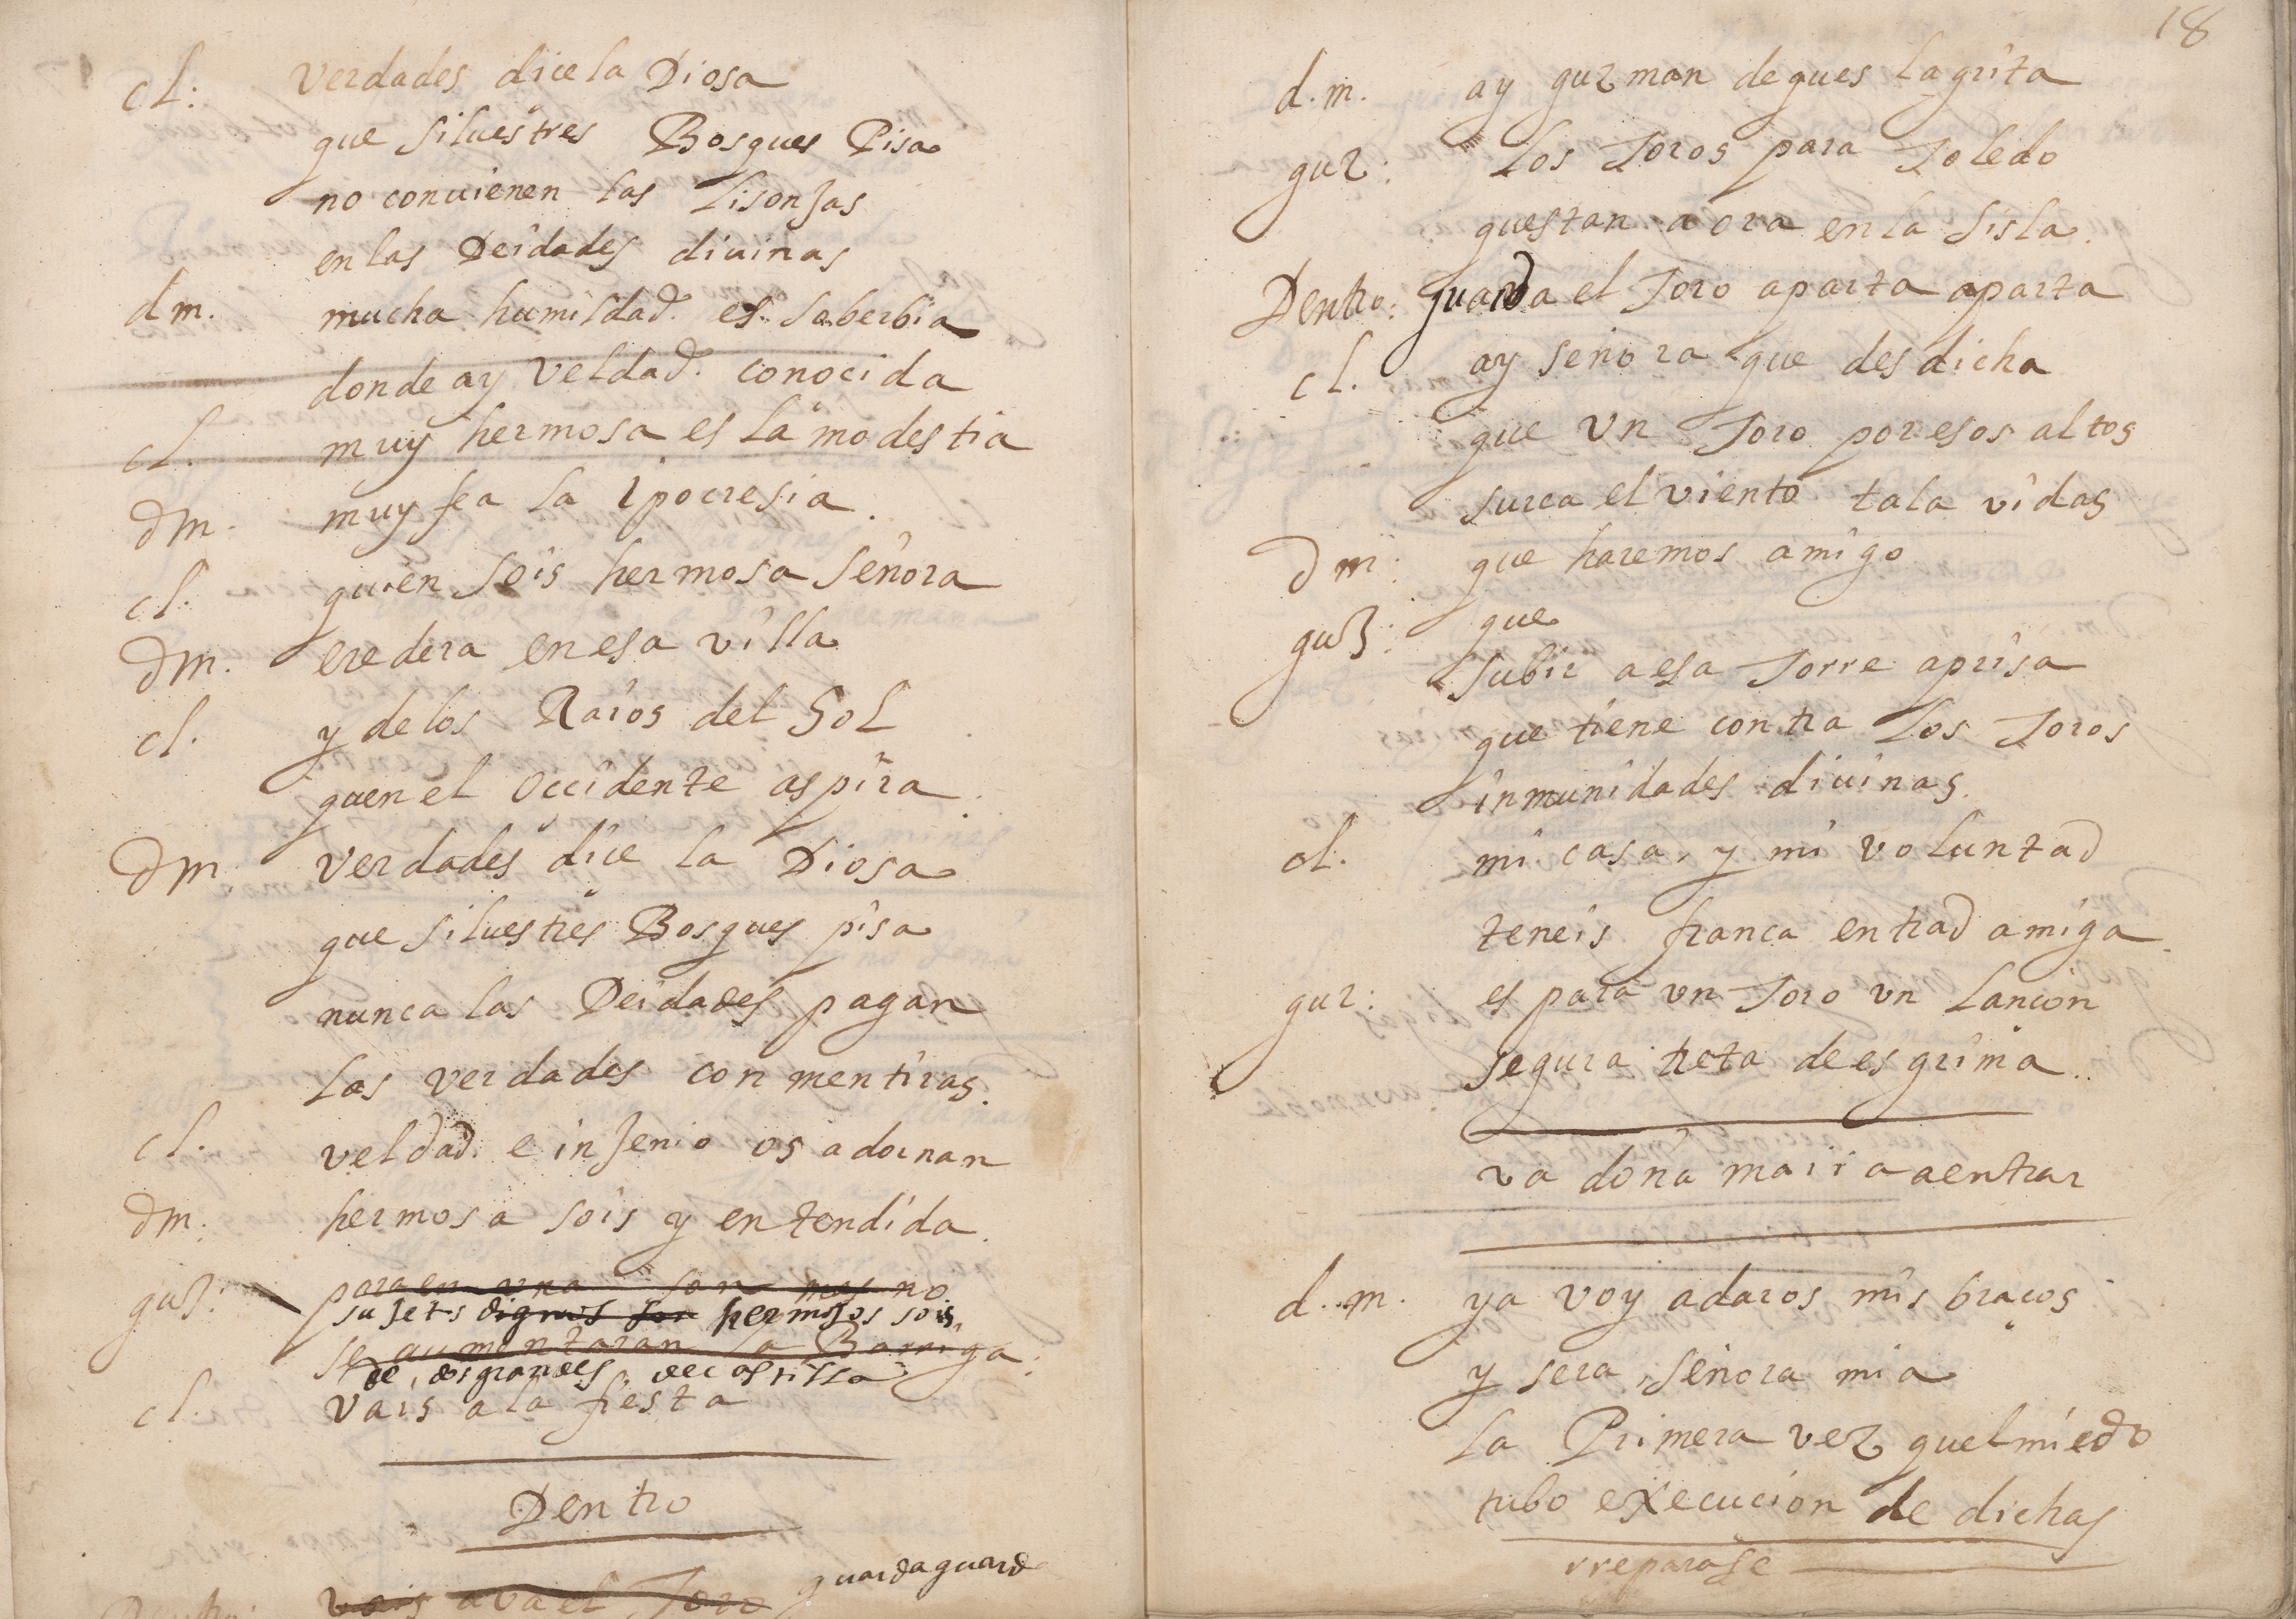 cl: verdades dice la Diosa
que siluestres Bosques Pisa
no conuienen las lisonjas
en las Deidades diuinas
dm. mucha humildad es soberbia
donde ay veldad conocida
cl. muy hermosa es la modestia
dm. muy fea la ipocresia
cl. quien sois hermosa señora
dm. eredera en esa villa
cl. y de los Raios del Sol
quen el occidente aspira
dm verdades dice la Diosa
que siluestres Bosques pisa
nunca las Deidades pagan
las verdades con mentiras.
cl. veldad e injenio os adornan
dm: hermosa sois y entendida.
guz: para en vna son mas no
sujetos dignos son hermosos sois
se aumentaran la Barriga
de dos grandes de castilla
cl. vais a la fiesta
Dentro
guarda guard
vais el Toro
18
d.m. ay guzman de ques la grita
guz: los Toros para Toledo
questan aora en la Sisla.
Dentro: guarda el Toro aparta aparta
cl. ay señora que desdicha
que vn Toro por esos altos
surca el viento tala vidas
dm: que haremos amigo
guz: que
subir a esa Torre aprisa
que tiene contra los Toros
inmunidades diuinas.
cl. mi casa, y mi voluntad
teneis franca entrad amiga
guz: es para vn Toro vn lançon
segura treta de esgrima..
va doña maria a entrar
d.m. ya voy a daros mis braços
y sera, señora mia
la Primera vez quel miedo
tubo execucion de dichas
rreparase